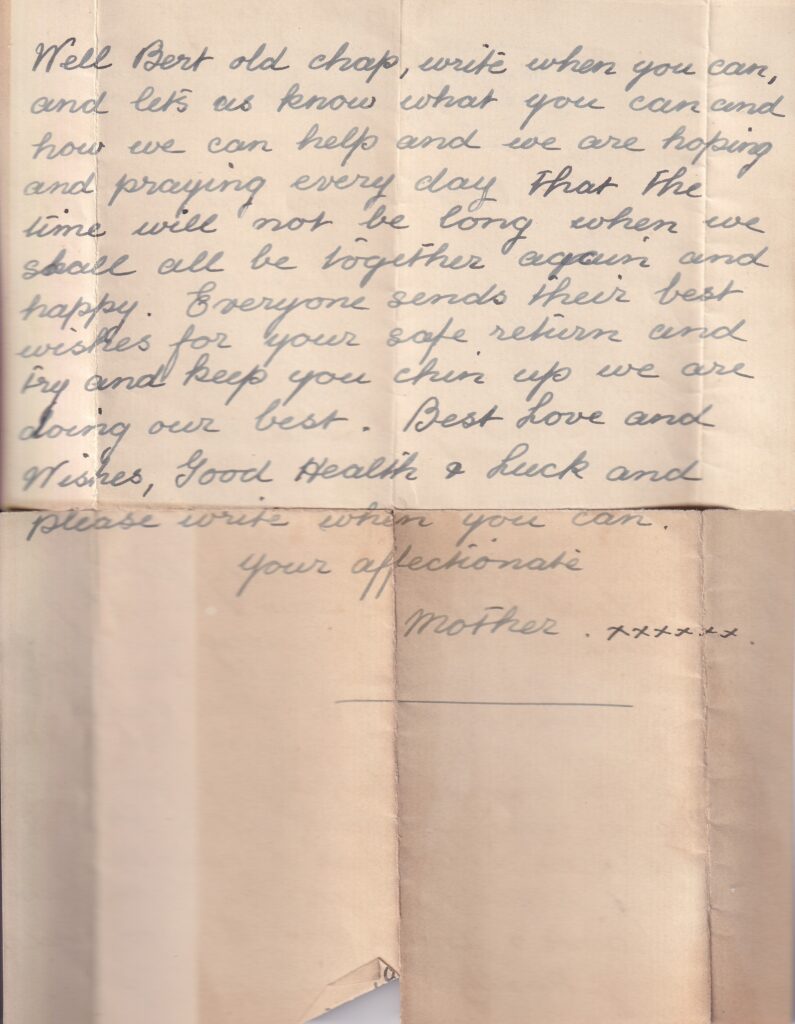 Well Bert old chap, write when you can,
and let's us know what you can and
how we can help and we are hoping
and praying every day that the
time will not be long when we
shall all be together again and
happy. Everyone sends their best
wishes for your safe return and
try and keep you chin up we are
doing our best. Best Love and
Wishes, Good Health & Luck and
please write when you can.
Your affectionate
Mother. xxxxxx.